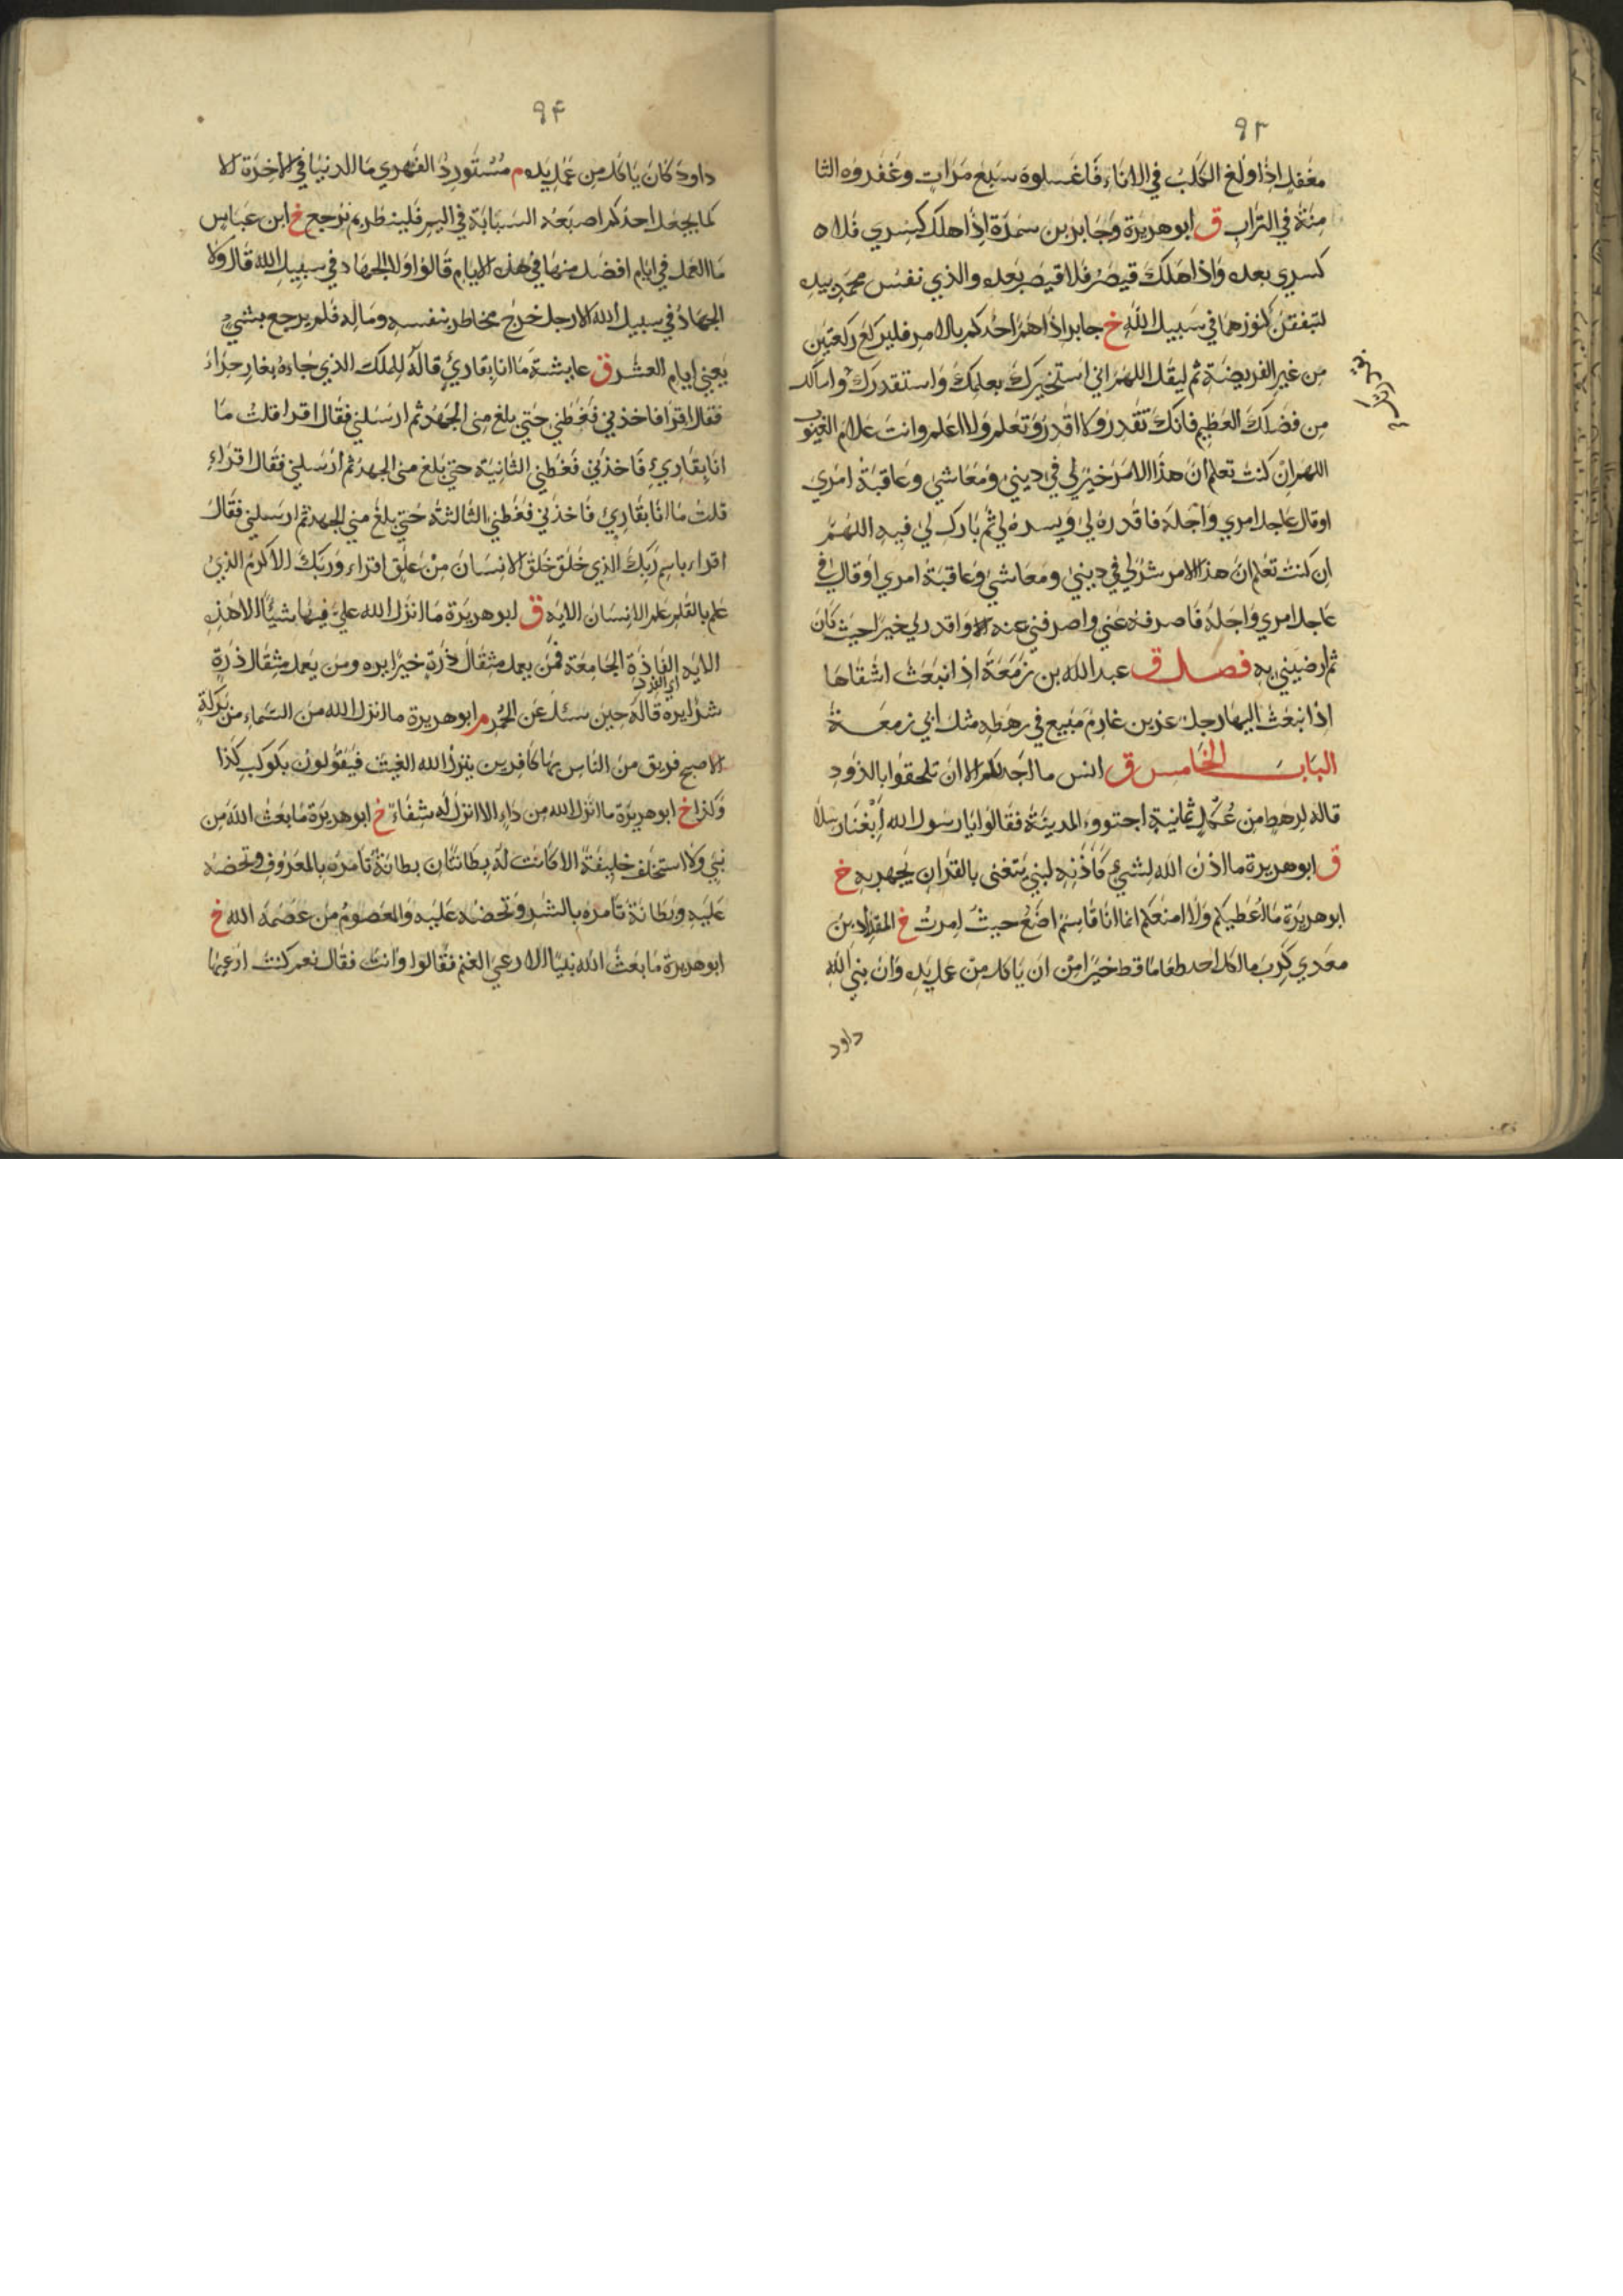 ٩٣
مغفل اذا ولغ الكلب في الاناء فاغسلوه سبع مرات وعفروه الثا
منة في التراب ق ابو هريرة وجابر بن سمرة اذا هلك كسري فلا ه
كسري بعده واذا هلك قيصر فلا قيصر بعده والذي نفس محمد بيده
لتنفقن كنوزهما في سبيل الله خ جابر اذا هم احدكم بالامر فليركع ركعتين
من غير الفريضة ثم ليقل اللهم اني استخيرك بعلمك واستقدرك واسالك
من فضلك العظيم فانك تقدر ولا اقدر وتعلم ولا اعلم وانت علام الغيوب
اللهم ان كنت تعلم ان هذا الامر خير لي في ديني ومعاشي وعاقبة امري
او قال عاجل امري واجله فاقدره لي ويسره لي ثم بارك لي فيه اللهم
ان كنت تعلم ان هذا الامر شر لي في ديني ومعاشي وعاقبة امري او قال في
عاجل امري واجله فاصرفه عني واصرفني عنه واقدر لي خيرا حيث كان
ثم ارضيني به فصل ق عبد الله بن زمعة اذ انبعث اشقاها
اذا نبعث اليها رجل عزيز غارم منيع في رهطه مثل ابي زمعة
الباب الخامس ق انس ما اجد لكم الا ان تلحقوا بالذود
قاله لرهط من عكل ثمانية اجتووء المدينة فقالوا يا رسول الله ابغنا رسلا
ق ابو هريرة ما اذن الله لشيء كاذنه لنبي يتغنى بالقران يجهر به خ
ابو هريرة ما اعطيكم ولا امنعكم انما انا قاسم اضع حيث امرت خ المقداد بن
معدي كرب ما اكل احد طعاما قط خيرا من ان ياكل من عمل يده وان نبي الله
داود
٩۴
داود كان ياكل من عمل يده م مستورد الفهري ما الدنيا في الاخرة الا
كما يجعل احدكم اصبعه السبابة في اليم فلينظر بم ترجع خ ابن عباس
ما العمل في ايام افضل منها في هذه الايام قالوا ولا الجهاد في سبيل الله قال ولا
الجهاد في سبيل الله الا رجل خرج مخاطر بنفسه وماله فلم يرجع بشيء
يعني ايام العشر ق عايشة ما انا بقاري قاله للملك الذي جاءه بغار حراء
فقال اقرا فاخذني فغطني حتي بلغ مني الجهد ثم ارسلني فقال اقرا قلت ما
انا بقاري فاخذني فغطني الثانية حتي بلغ مني الجهد ثم ارسلني فقال اقراء
قلت ما انا بقاري فاخذني فغطني الثالثة حتي بلغ مني الجهد ثم ارسلني فقال
اقراء باسم ربك الذي خلق خلق الانسان من علق اقراء وربك الاكرم الذي
علم بالقلم علم الانسان الايه ق ابو هريرة ما انزل الله علي فيها شيئا الا هذه
الايه الفاذة الجامعة فمن يعمل مثقال ذرة خيرا يره ومن يعمل مثقال ذرة
شرا يره قاله حين سئل عن الحمر م ابو هريرة ما انزل الله من السماء من بركة
الا اصبح فريق من الناس بها كافرين ينزل الله الغيث فيقولون بكوكب كذا
وكذا خ ابو هريرة ما انزل الله من داء الا انزل له شفاء خ ابو هريرة ما بعث الله من
نبي ولا استخلف خليفة الا كانت له بطانتان بطانة تامره بالمعروف وتحضه
عليه وبطانة تامره بالشر وتحضه عليه والمعصوم من عصمه الله خ
ابو هريرة ما بعث الله نبيا الا رعي الغنم فقالوا وانت فقال نعم كنت ارعيها